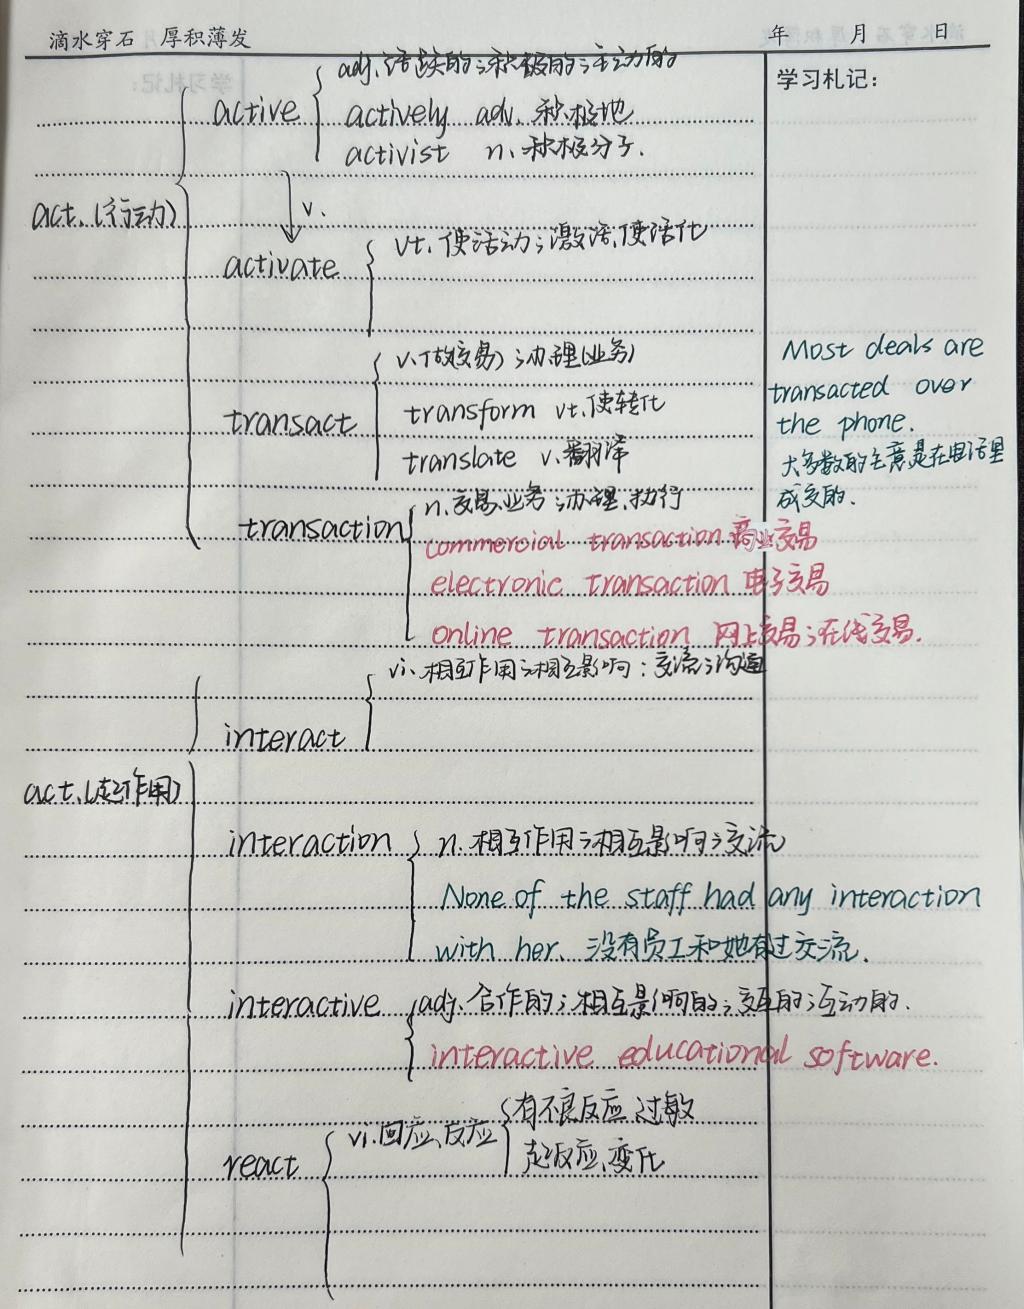 滴水穿石 厚积薄发 年 月 日
学习札记：
act. (行动)
active
adj. 活跃的；积极的；主动的
actively adv. 积极地
activist n. 积极分子.
v.
activate
vt. 使活动；激活，使活化
transact
v. (做交易)；办理(业务)
transform vt. 使转化
translate v. 翻译
Most deals are
transacted over
the phone.
大多数的生意是在电话里
成交的.
transaction
n. 交易、业务；办理、执行
commercial transaction 商业交易
electronic transaction 电子交易
online transaction 网上交易；在线交易.
act. (起作用)
interact
vi. 相互作用；相互影响；交流；沟通
interaction
n. 相互作用；相互影响；交流
None of the staff had any interaction
with her. 没有员工和她有过交流.
interactive
adj. 合作的；相互影响的；交互的；互动的.
interactive educational software.
react
vi. 回应、反应
有不良反应、过敏
起反应、变化